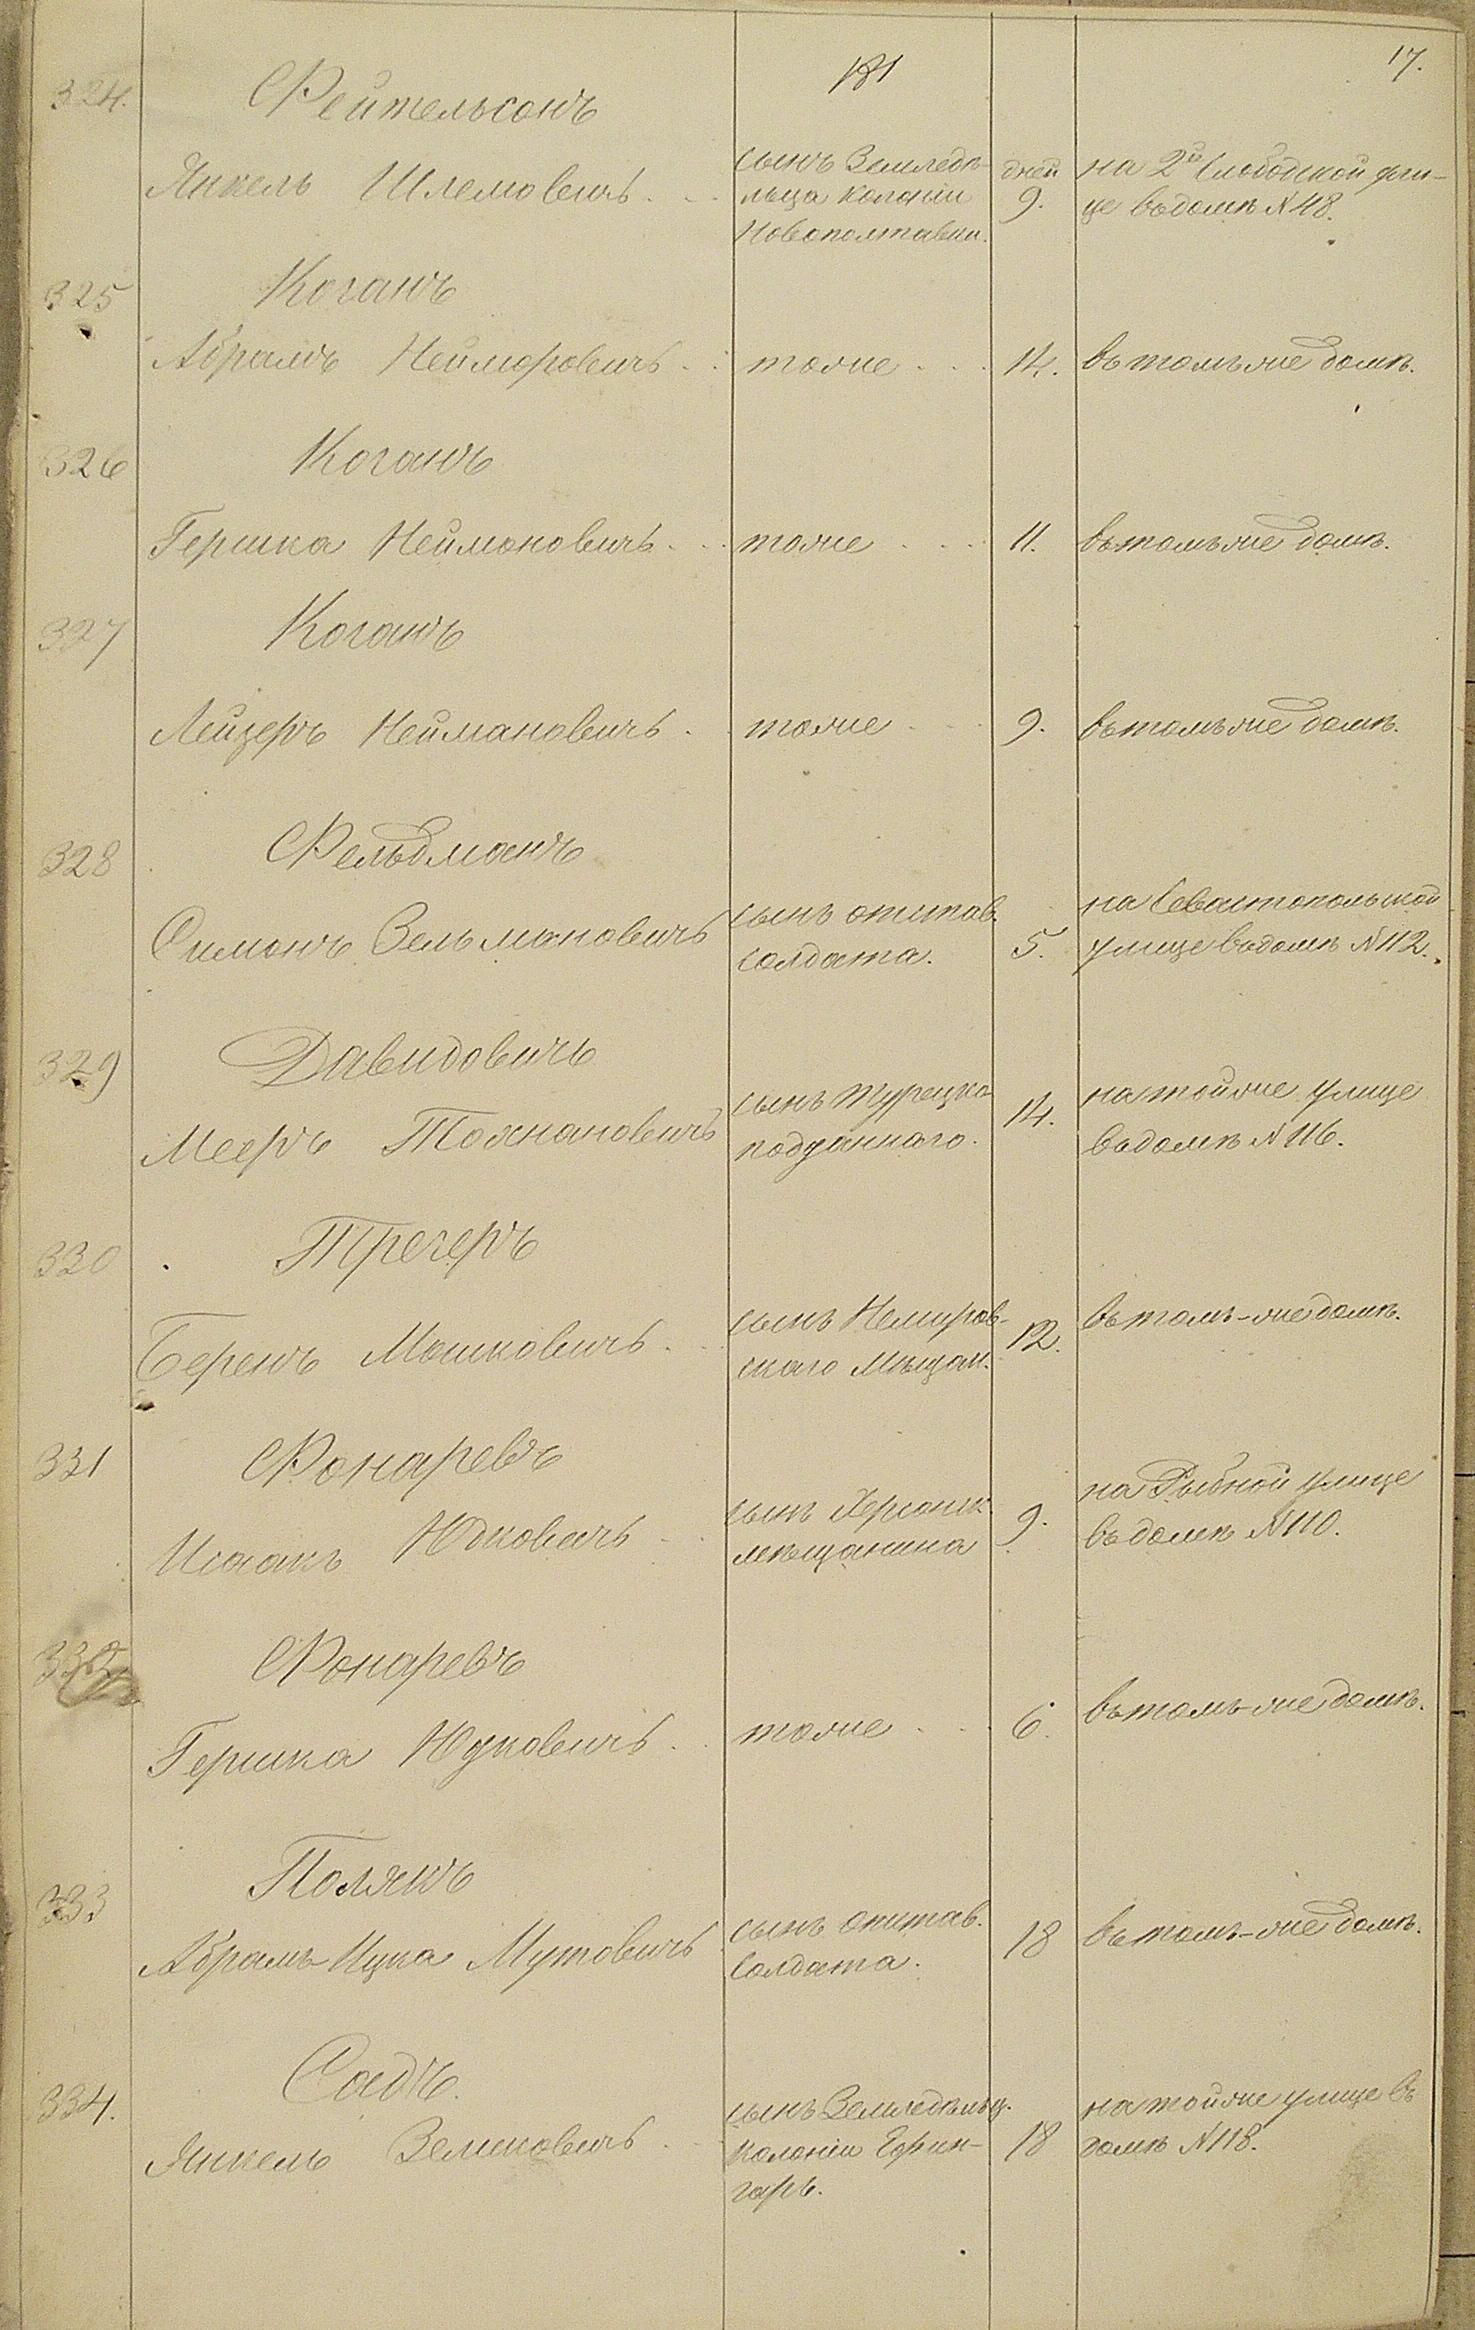 181
17.
324.
Фейтельсонъ
Янкель Шлемовичъ . .
сынъ Земледѣ-
льца колоніи
Новополтавки.
дней
9.
на 2й Слободской ули-
це въ домѣ N 48.
325
Коганъ
Абрамъ . .
тоже . . .
14.
въ томъ же домѣ.
326
Коганъ
Гершка Неймановичъ . .
тоже . . .
11.
въ томъ же домѣ.
327
Коганъ
Лейзеръ Неймановичъ .
тоже . . .
9.
въ томъ же домѣ.
328
Фельдманъ
Симонъ Зельмановичъ
сынъ отстав.
солдата.
5.
на Севастопольской
улице въ домѣ N 112.
329
Давидовичъ
Мееръ
сынъ Турецко
подданнаго.
14.
на той же улице
въ домѣ N 116.
330
Трегеръ
Беренъ Мошковичъ . .
сынъ Немиров-
скаго Мѣщан.
12.
въ томъ-же домѣ.
331
Фонаревъ
Исаакъ Юдковичъ . .
сынъ Херсонск.
мѣщанина
9.
на Рыбной улице
въ домѣ N 110.
332
Фонаревъ
Гершка Юдковичъ . .
тоже . . .
6.
въ томъ-же домѣ.
333
Полякъ
Абрамъ-Ицка Мутовичъ
сынъ отстав.
солдата.
18
въ томъ-же домѣ.
334.
Садъ.
Янкель Зелековичъ . .
сынъ Земледѣльц.
колоніи Ефин-
гаръ.
18
на той же улице въ
домѣ N 118.